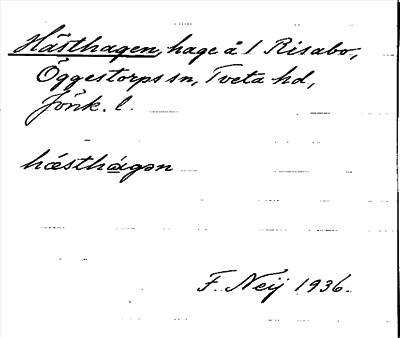 Hästhagen, hage å 1 Risabo,
Öggestorps sn, Tveta hd,
Jönk. l.
hǽsthá̱gən
F. Neij 1936.